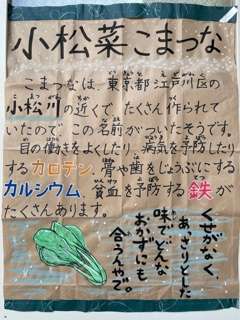 小松菜こまつな
こまつなは、東京都江戸川区の
小松川の近くで、たくさん作られて
いたので、この名前がついたそうです。
目の働きをよくしたり、病気を予防したり
するカロテン、骨や歯をじょうぶにする
カルシウム、貧血を予防する鉄が
たくさんあります。
くせがなく、
あっさりとした
味でどんな
おかずにも
合うんやで。